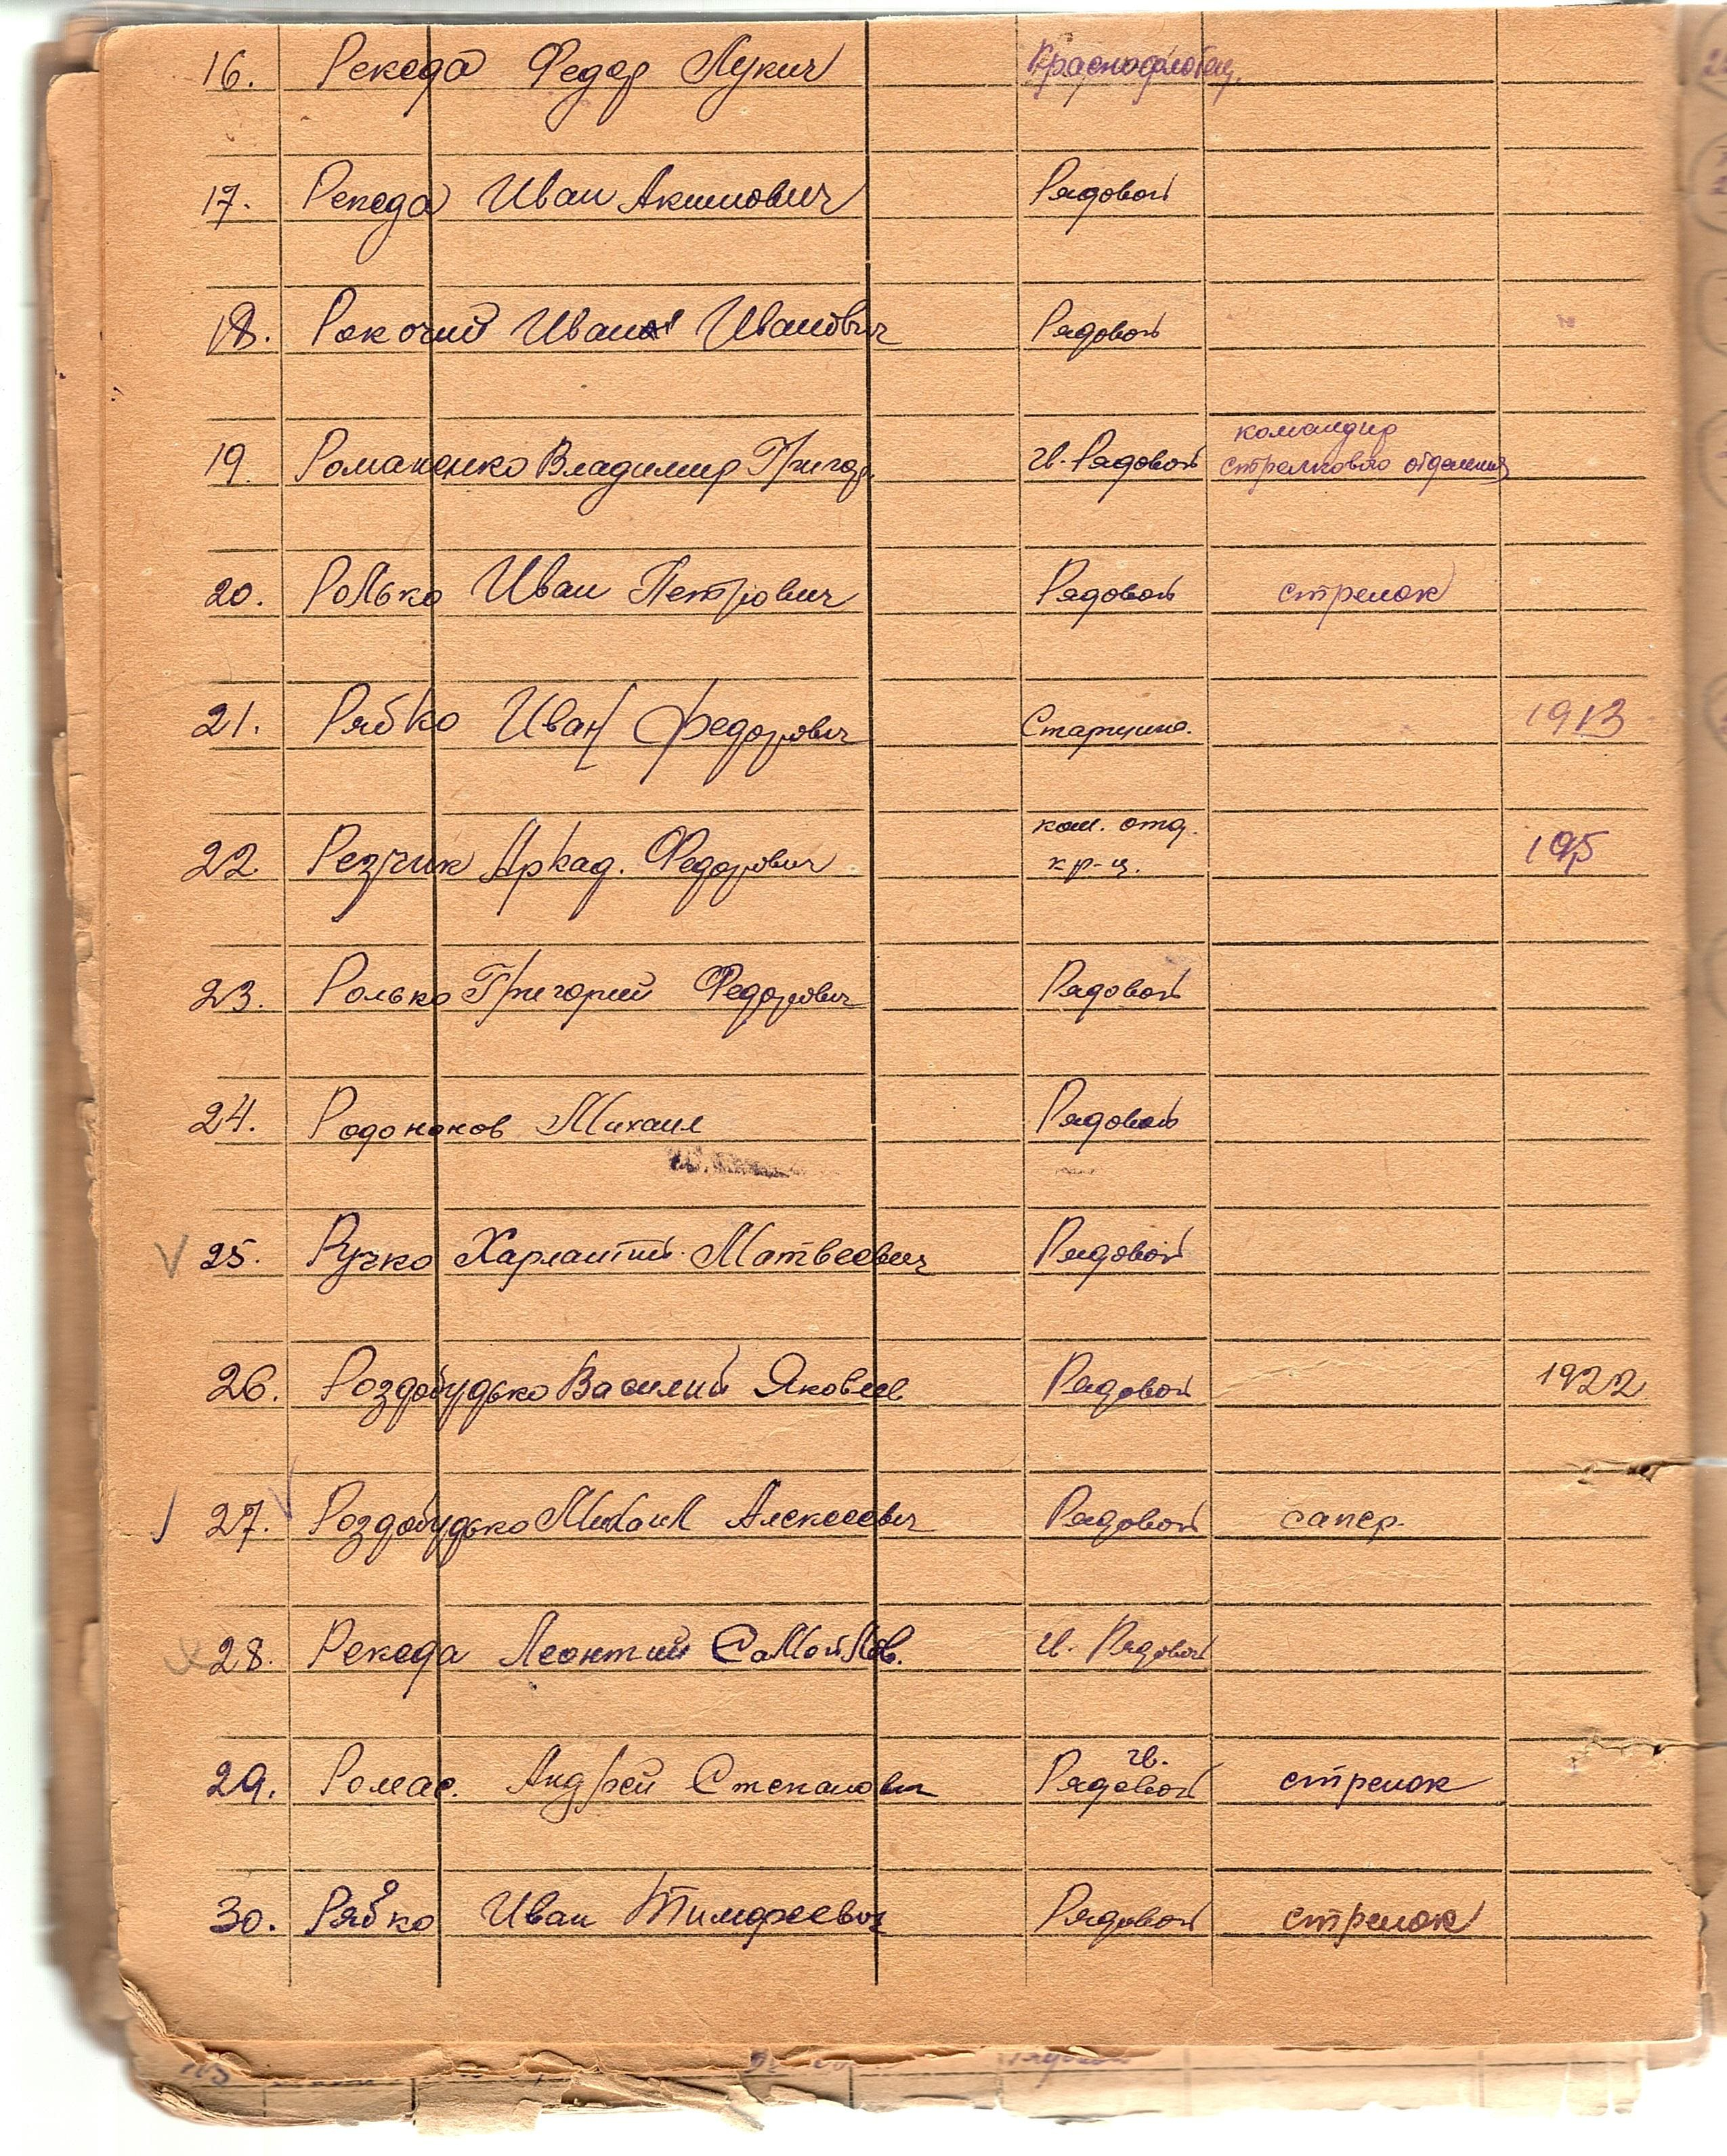 16. Рекеда Федор Лукич Краснофлотец.
17. Рекеда Иван Акимович Рядовой
18. Рокочий Иван Иванович Рядовой
19. Романенко Владимир Григор. гв. Рядовой командир
стрелкового отделения
20. Ролько Иван Петрович Рядовой стрелок
21. Рябко Иван Федорович Старшина. 1913
22 Резчик Аркад. Федорович ком. отд.
кр-ц.
23. Ролько Григорий Федорович Рядовой
24. Родоноков Михаил Рядовой
25. Ручко Харлантий Матвеевич Рядовой
26. Роздобудько Василий Яковлев. Рядовой 1922
27. Роздобудько Михаил Алексеевич Рядовой сапер.
28. Рекеда Леонтий Самойлов. гв. Рядовой
29. Ромас. Андрей Степанович гв.
Рядовой стрелок
30. Рябко Иван Тимофеевич Рядовой стрелок